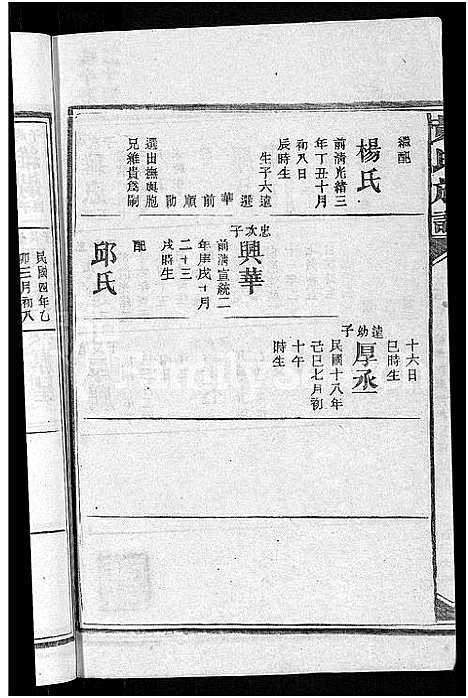 繼配
楊氏
前清光緒三
年丁丑十月
初八日
辰時生
生子六遠
選華前順勛
選出撫與胞
兄維貴為嗣
忠次子
興華
前清宣統二
年庚戌十月
二十三
戌時生
配
邱氏
十六日
巳時生
遠幼子
厚丞
民國十八年
己巳七月初
十午
時生
民國四年乙
卯三月初八
氏族譜